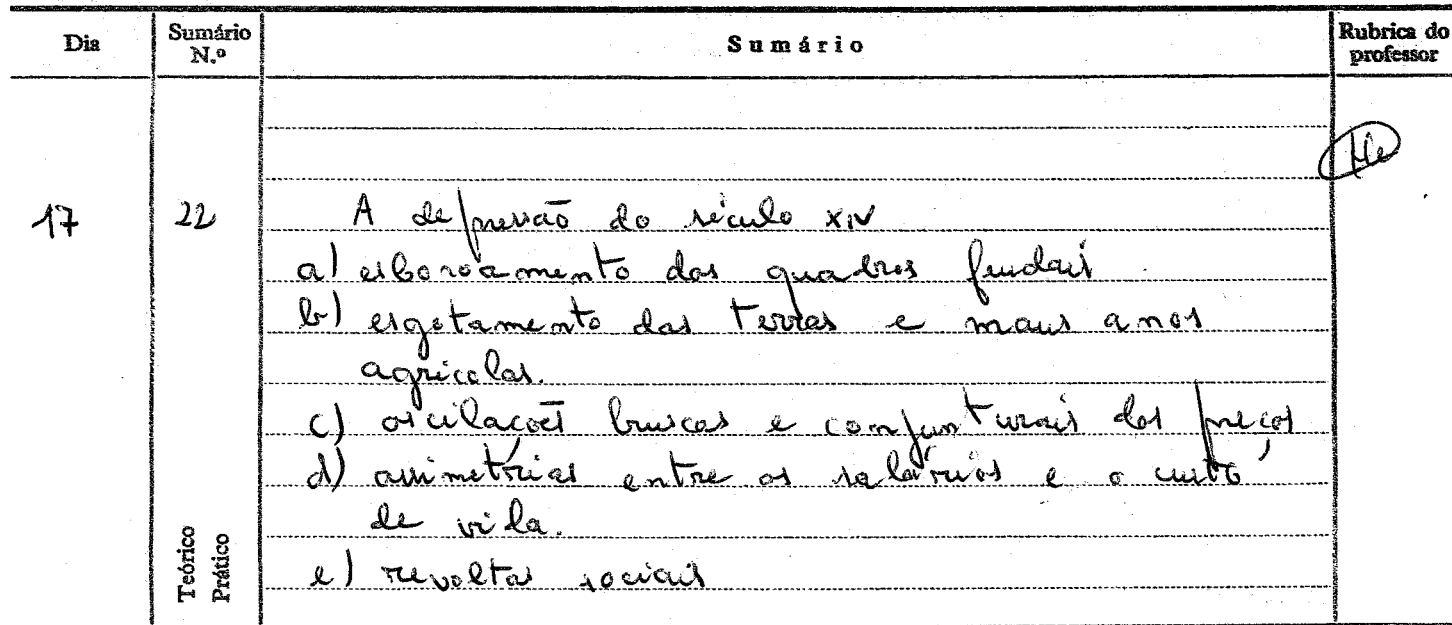 Dia Sumário N.º Sumário Rubrica do professor
17 22 A depressão do século XIV
a) esboroamento dos quadros feudais
b) esgotamento das terras e maus anos
agrícolas.
c) oscilações bruscas e conjunturais dos preços
d) assimetrias entre os salários e o custo
de vida.
e) revoltas sociais
Teórico
Prático